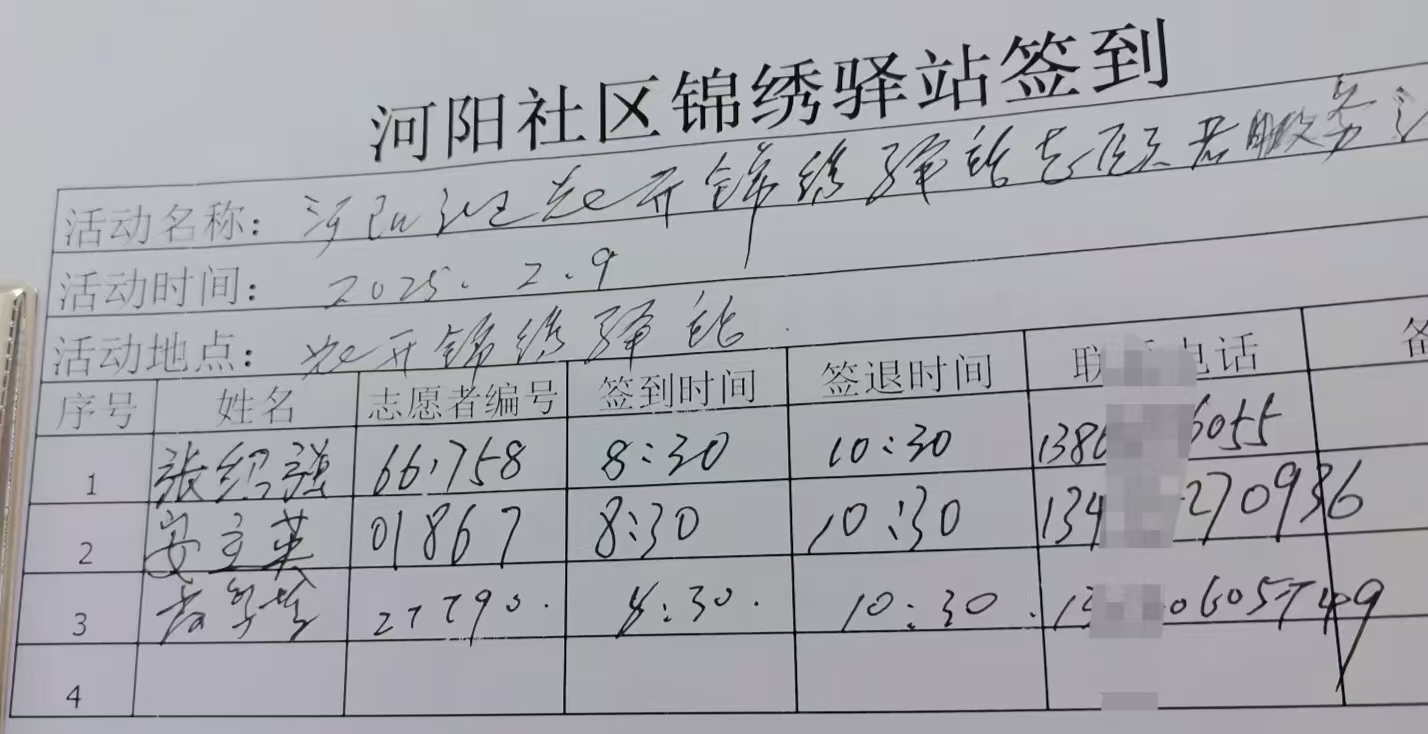 河阳社区锦绣驿站签到
活动名称：河阳社区龙开锦绣驿站志愿者服务活
活动时间：2025.2.9
活动地点：龙开锦绣驿站
序号 姓名 志愿者编号 签到时间 签退时间 联 电话 备
1 张绍强 66758 8:30 10:30 1380 6055
2 安立英 01867 8:30 10:30 134 270936
3 27790. 8:30. 10:30. 13 0605749
4